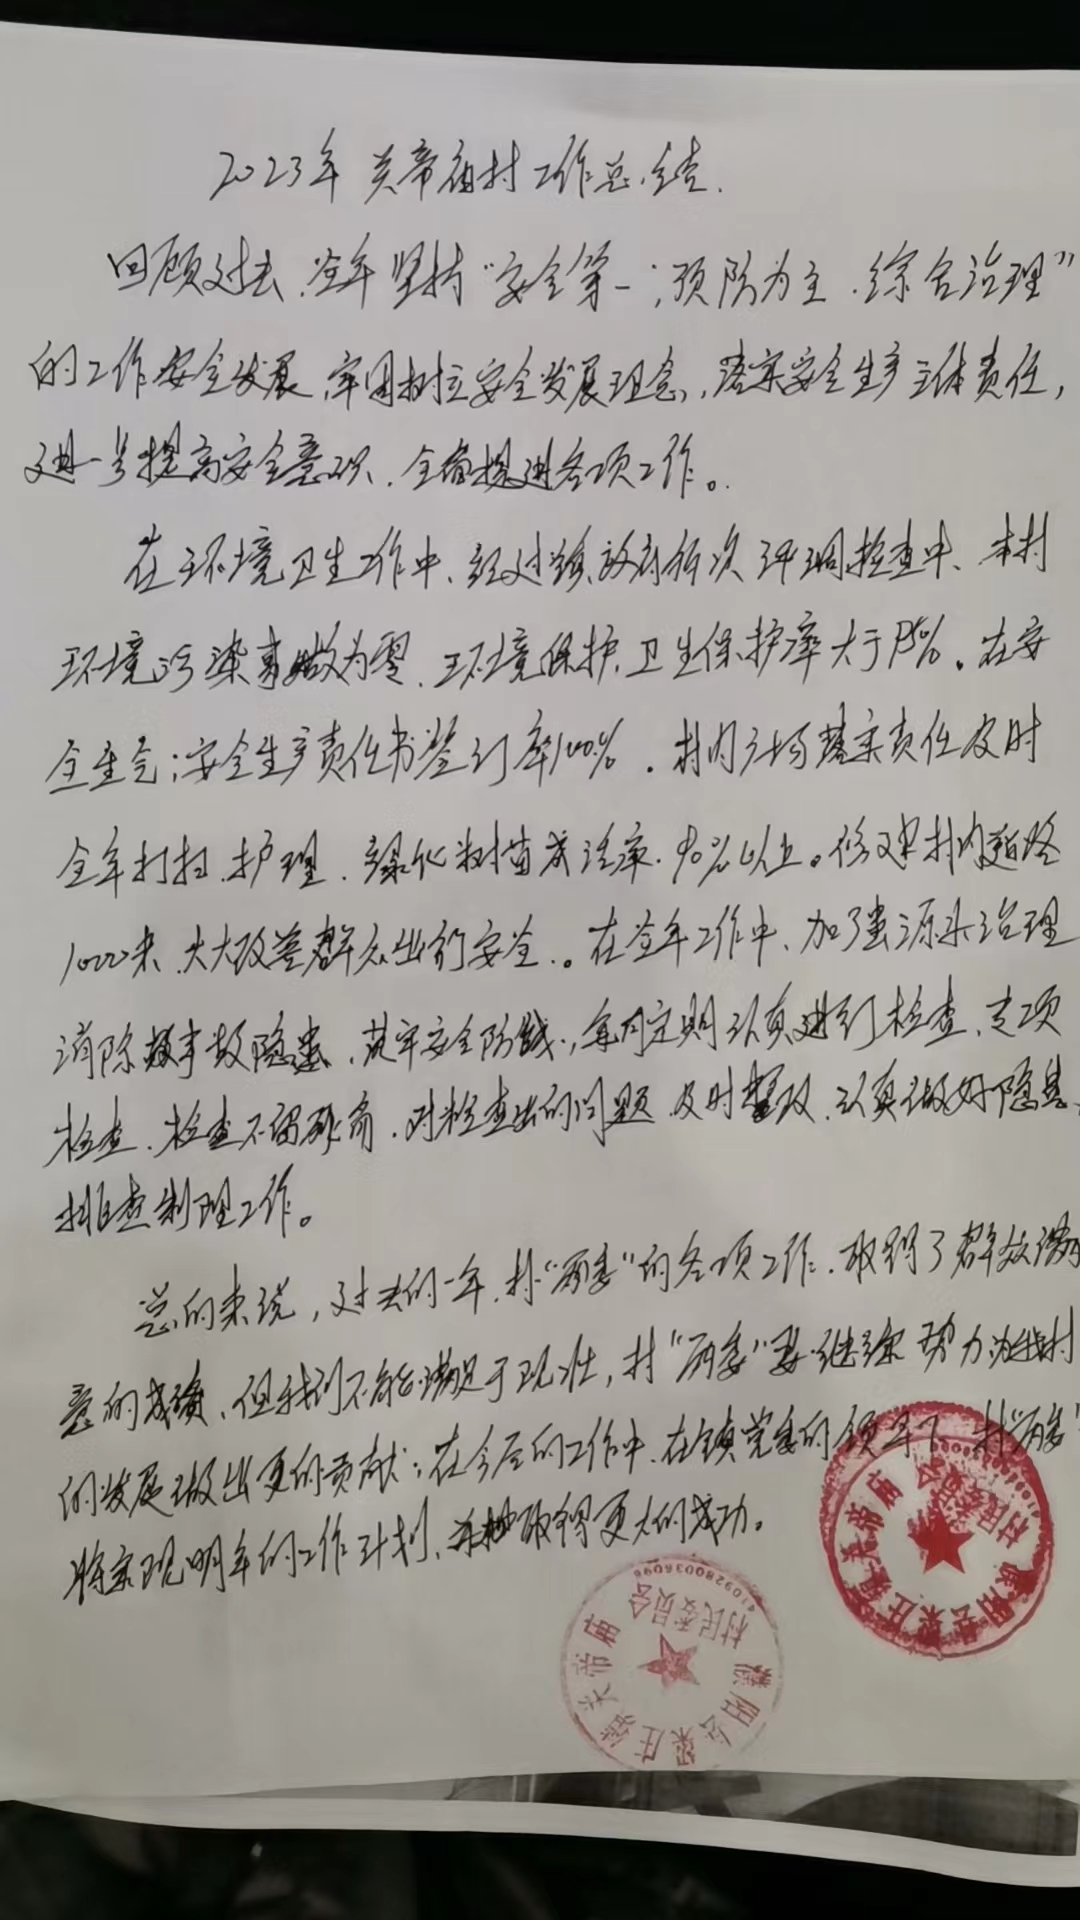 2023年关帝庙村工作总结.
回顾过去,全年坚持“安全第一,预防为主,综合治理”
的工作安全发展,牢固树立安全发展理念,落实安全生产主体责任,
进一步提高安全意识,全面推进各项工作。
在环境卫生工作中、经过镇政府 次 检查中、本村
环境污染事故为零,环境保护,卫生保护率大于95%。在安
全生产;安全生产责任书签订率100%。村内广场落实责任及时
全年打扫,护理,绿化树苗成活率.90%以上。修建村内道路
1000米,大大改善群众出行安全。在全年工作中、加强源头治理
消除事故隐患,筑牢安全防线,每月定期认真进行检查、专项
检查,检查不留死角,对检查出的问题及时整改,认真做好隐患
排查制理工作。
总的来说,过去的一年,村“两委”的各项工作,取得了群众满
意的成绩,但我们不能满足于现状,村“两委”要继续努力为我村
的发展做出更的贡献;在今后的工作中,在镇党委的领导下,村“两委”
将实现明年的工作计划,并 取得更大的成功。
濮阳县梁庄镇关帝庙
村民委员会
濮阳县梁庄镇关帝庙
村民委员会
4109280036096